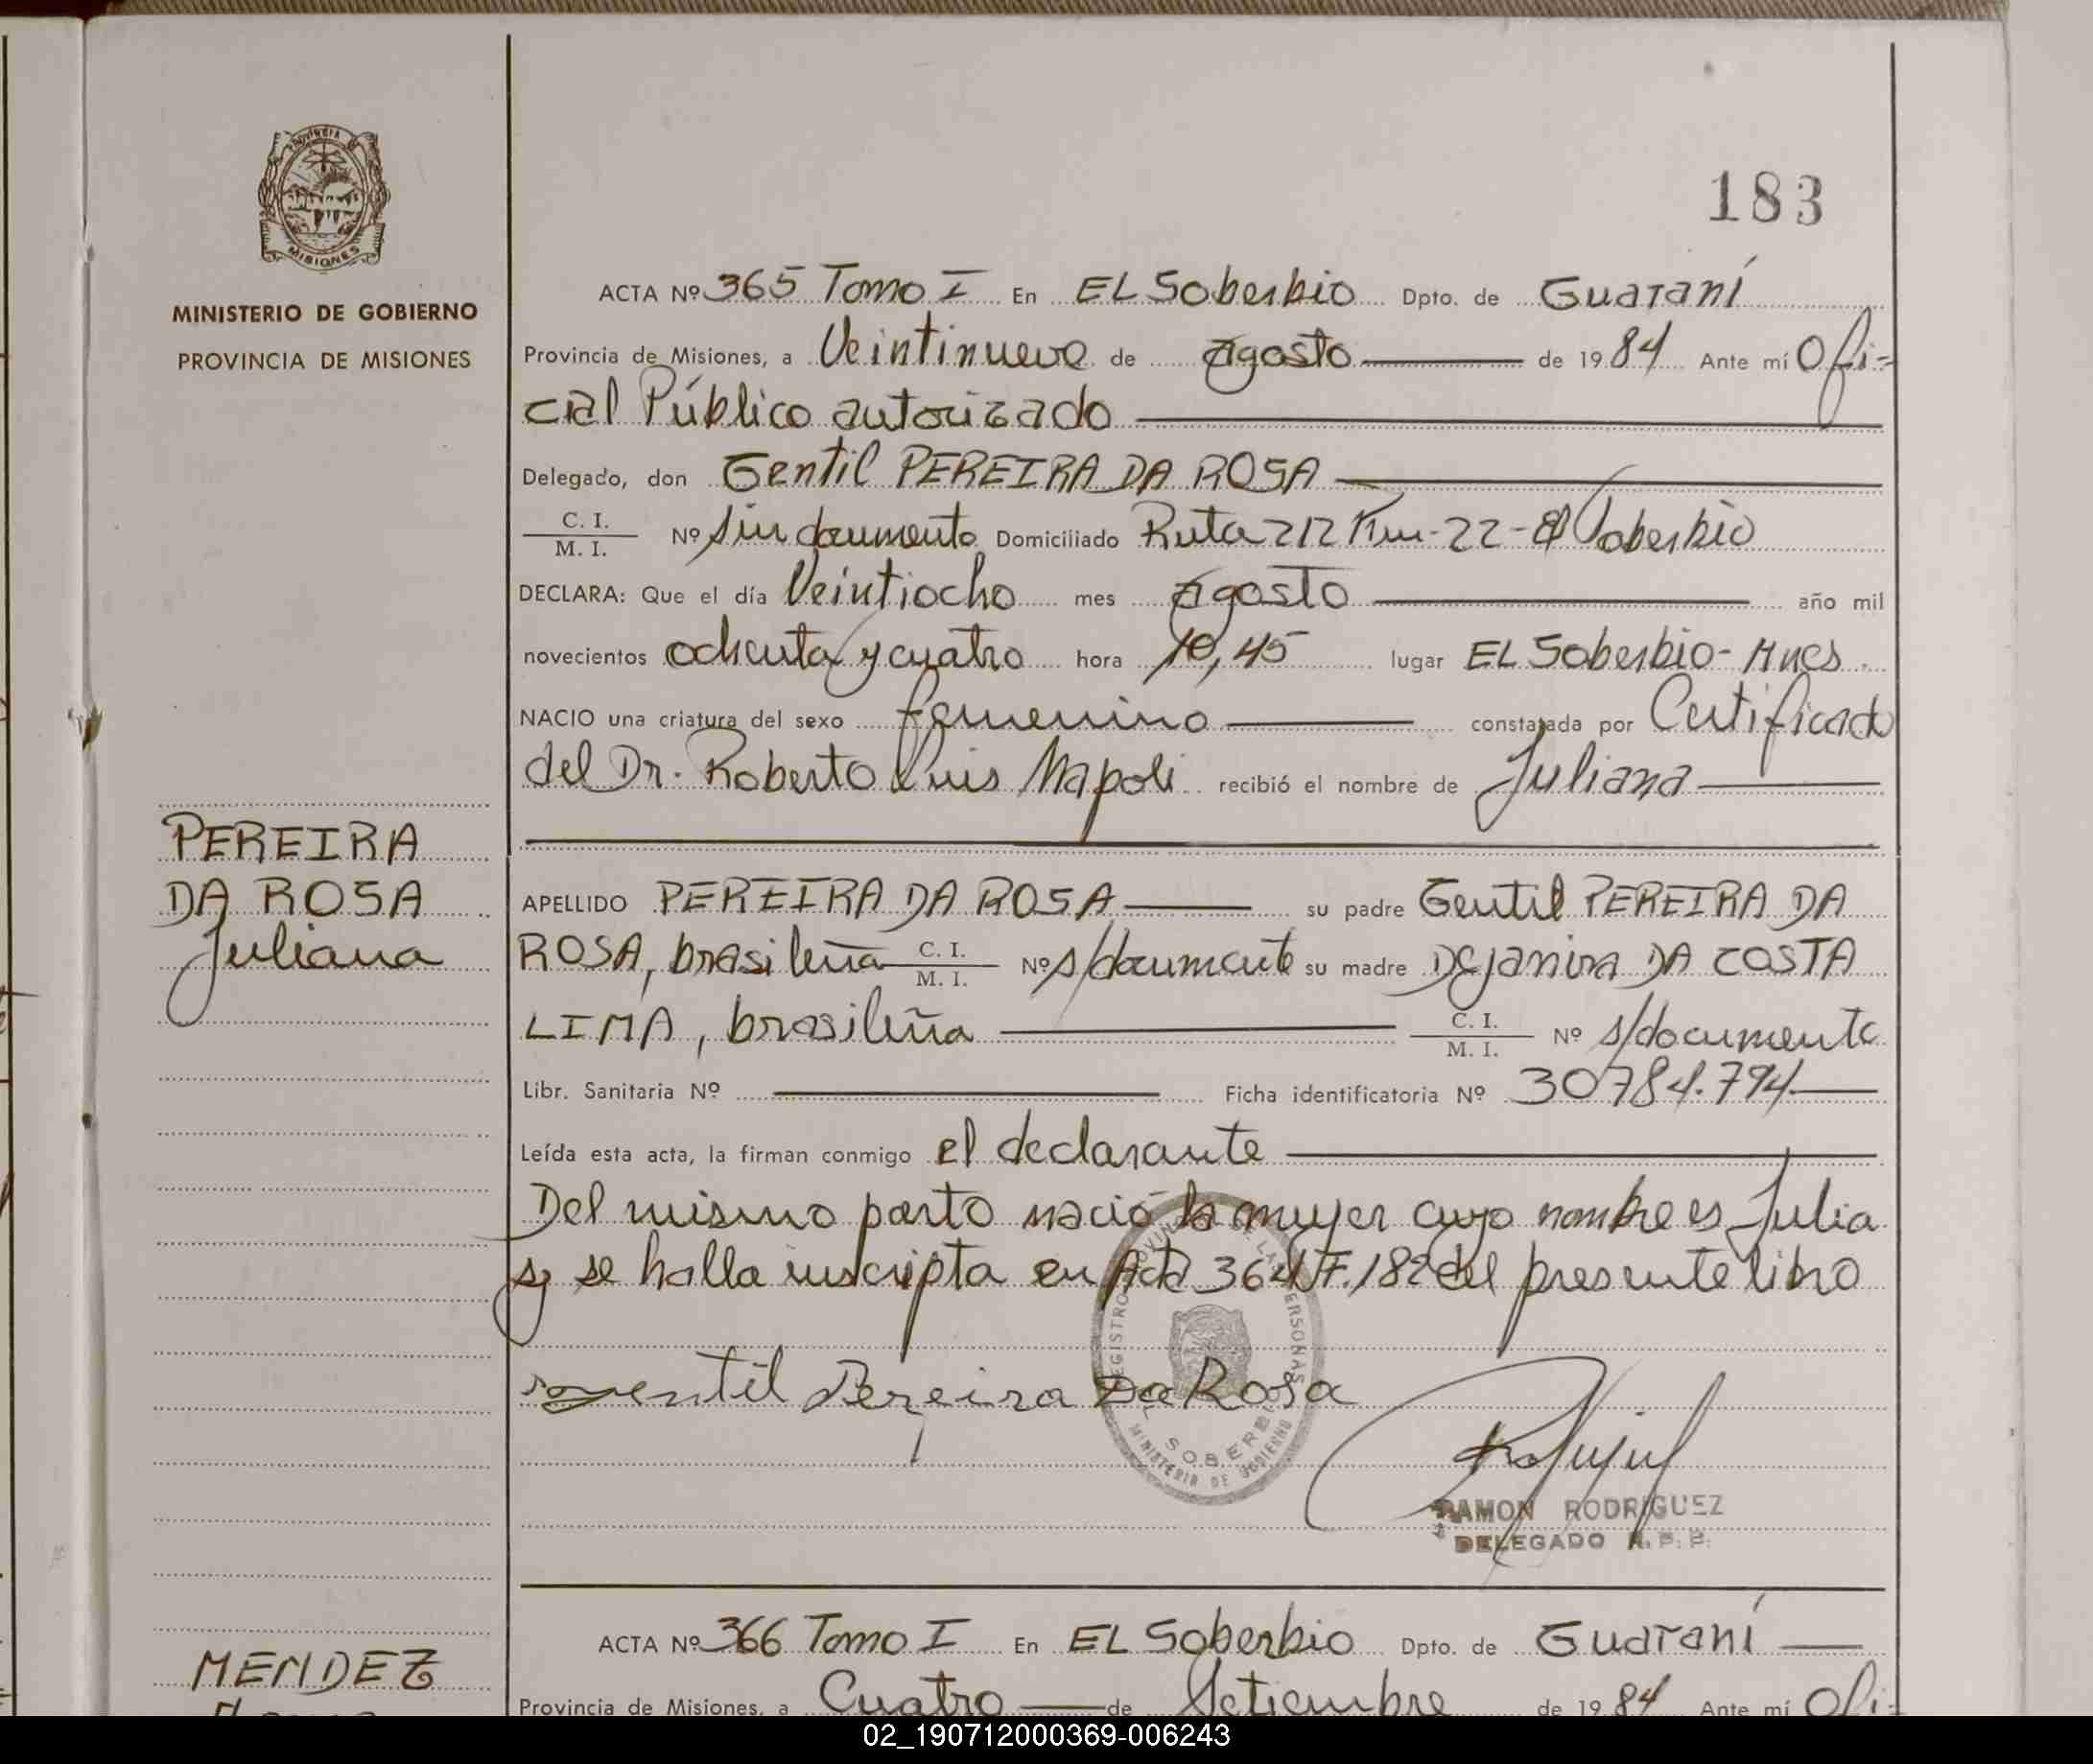 PROVINCIA
MISIONES
MINISTERIO DE GOBIERNO
PROVINCIA DE MISIONES
183
ACTA Nº 365 Tomo I En EL Soberbio Dpto. de Guaraní
Provincia de Misiones, a Veintinueve de agosto de 1984 Ante mí Ofi-
cial Público autorizado
Delegado, don Gentil PEREIRA DA ROSA
C. I.
M. I. Nº Sin documento Domiciliado Ruta 212 Km-22-El Soberbio
DECLARA: Que el día Veintiocho mes agosto año mil
novecientos ochenta y cuatro hora 10,45 lugar EL Soberbio- Mnes
NACIO una criatura del sexo femenino constatada por Certificado
del Dr. Roberto Luis Napoli recibió el nombre de Juliana
PEREIRA
DA ROSA
Juliana
APELLIDO PEREIRA DA ROSA su padre Gentil PEREIRA DA
ROSA, brasileña C. I.
M. I. Nº s/documento su madre Dejanira DA COSTA
LIMA, brasileña C. I.
M. I. Nº s/documento
Libr. Sanitaria Nº Ficha identificatoria Nº 30784.794
Leída esta acta, la firman conmigo el declarante
Del mismo parto nació la mujer cuyo nombre es Julia
y se halla inscripta en Acta 364 F.182 del presente libro
Gentil Pereira Da Rosa
SOBERBIO
MINISTERIO DE GOBIERNO
RAMON RODRIGUEZ
DELEGADO R. P. P.
MENDEZ
ACTA Nº 366 Tomo I En EL Soberbio Dpto. de Guaraní
Provincia de Misiones, a Cuatro de Setiembre de 1984 Ante mí Ofi-
02_190712000369-006243